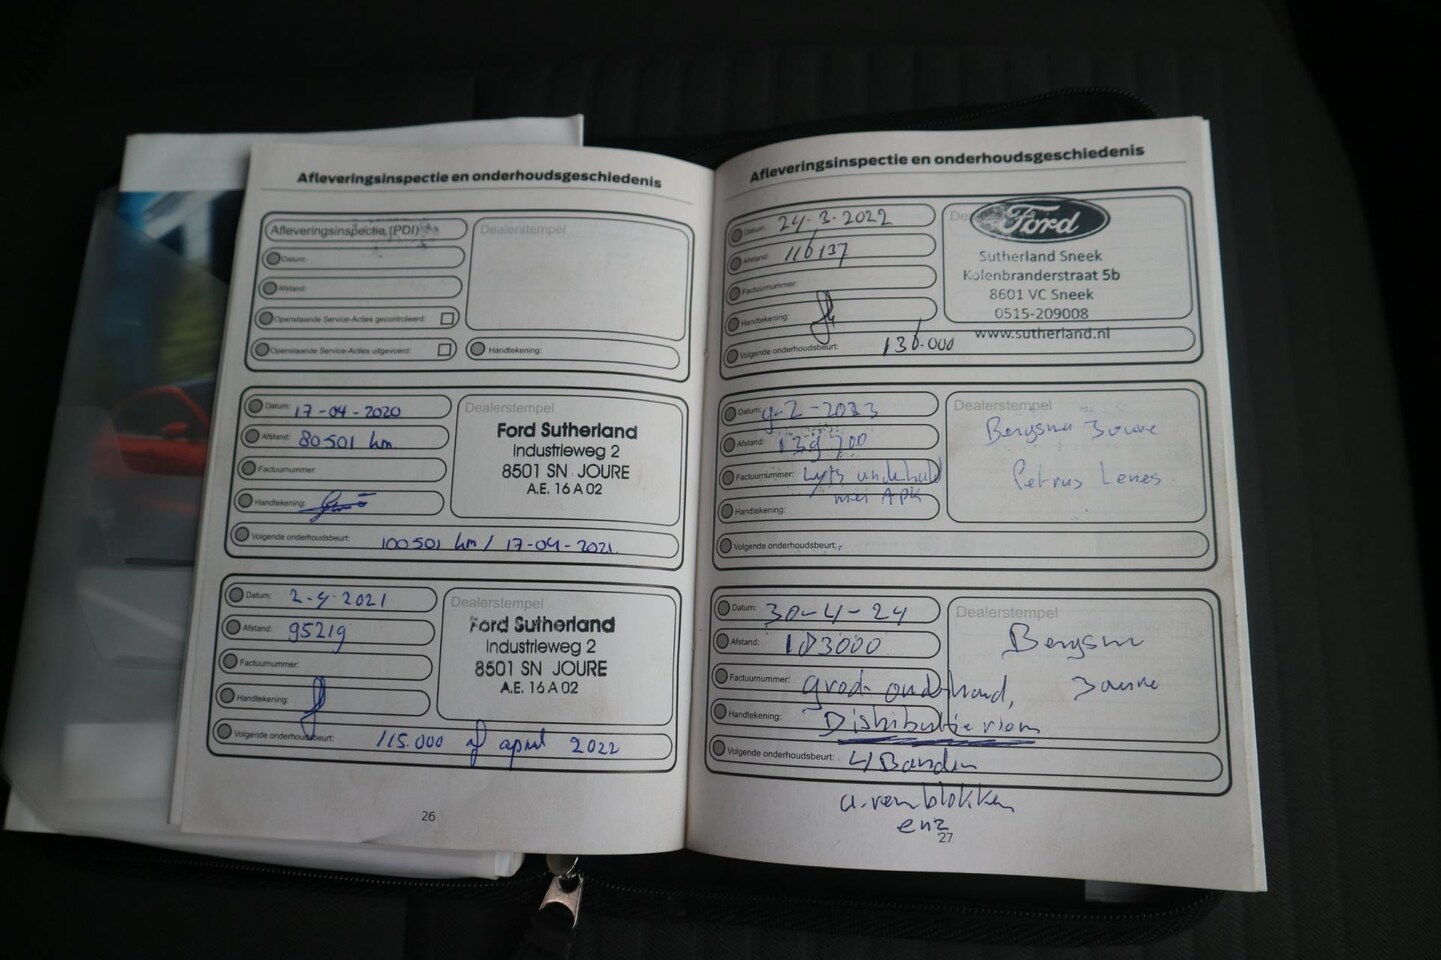 Afleveringsinspectie en onderhoudsgeschiedenis
Afleveringsinspectie (PDI)
Dealerstempel
Datum:
Afstand:
Openstaande Service-Acties gecontroleerd:
Openstaande Service-Acties uitgevoerd:
Handtekening:
Datum: 17-04-2020
Dealerstempel
Afstand: 80501 km
Ford Sutherland
Industrieweg 2
8501 SN JOURE
A.E. 16 A 02
Factuurnummer:
Handtekening:
Volgende onderhoudsbeurt: 100501 km / 17-04-2021
Datum: 2-4-2021
Dealerstempel
Afstand: 95219
Ford Sutherland
Industrieweg 2
8501 SN JOURE
A.E. 16 A 02
Factuurnummer:
Handtekening:
Volgende onderhoudsbeurt: 115.000 of april 2022
26
Afleveringsinspectie en onderhoudsgeschiedenis
Datum: 24-3-2022
Ford
Afstand: 116137
Sutherland Sneek
Kolenbranderstraat 5b
8601 VC Sneek
0515-209008
www.sutherland.nl
Factuurnummer:
Handtekening:
Volgende onderhoudsbeurt: 136.000
Datum: 9-2-2023
Dealerstempel
Afstand: 139700
Bergsma Joure
Petrus
Factuurnummer:
met APK
Handtekening:
Volgende onderhoudsbeurt:
Datum: 30-4-24
Dealerstempel
Afstand: 183000
Bergsma
Joure
Factuurnummer: groot onderhoud,
Handtekening: Distributieriem
Volgende onderhoudsbeurt: 4 Banden
a. remblokken
enz
27